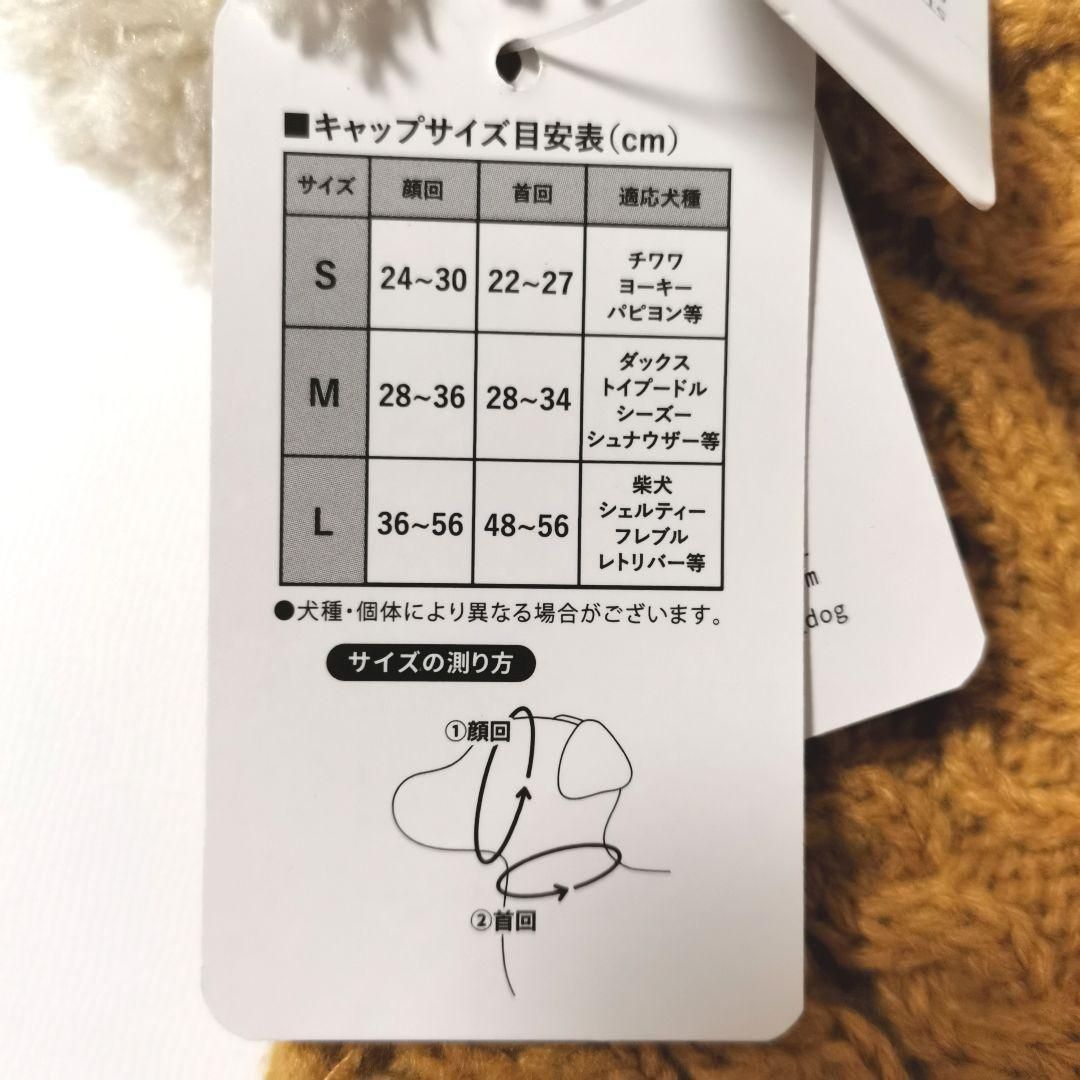 ■キャップサイズ目安表(cm)
サイズ 顔回 首回 適応犬種
S 24~30 22~27 チワワ
ヨーキー
パピヨン等
M 28~36 28~34 ダックス
トイプードル
シーズー
シュナウザー等
L 36~56 48~56 柴犬
シェルティー
フレブル
レトリバー等
●犬種・個体により異なる場合がございます。
サイズの測り方
①顔回
②首回
m
dog